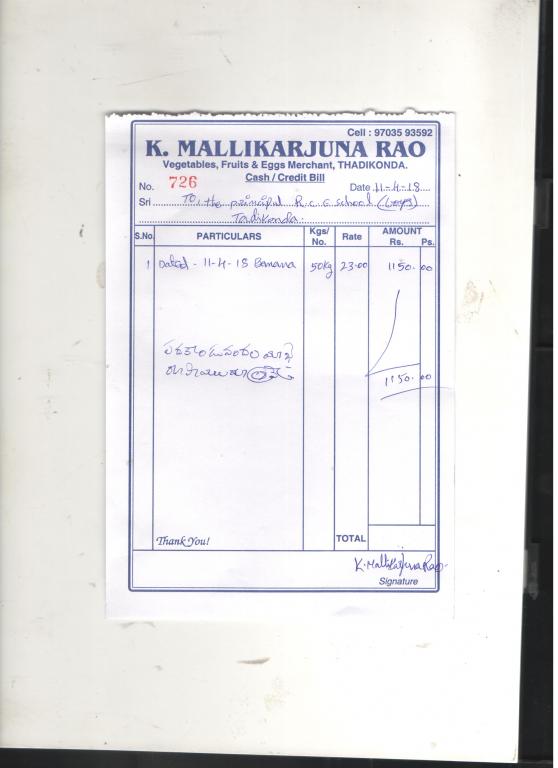 Cell : 97035 93592
K. MALLIKARJUNA RAO
Vegetables, Fruits & Eggs Merchant, THADIKONDA.
Cash / Credit Bill
No. 726 Date 11-4-18
Sri To, the principal R.C.E school (boys)
Tadikonda.
S.No. PARTICULARS Kgs/ No. Rate AMOUNT Rs. Ps.
1 Dated - 11-4-18 Banana 50kg 23-00 1150. 00
1150. 00
Thank You! TOTAL
K. Mallikarjuna Rao
Signature